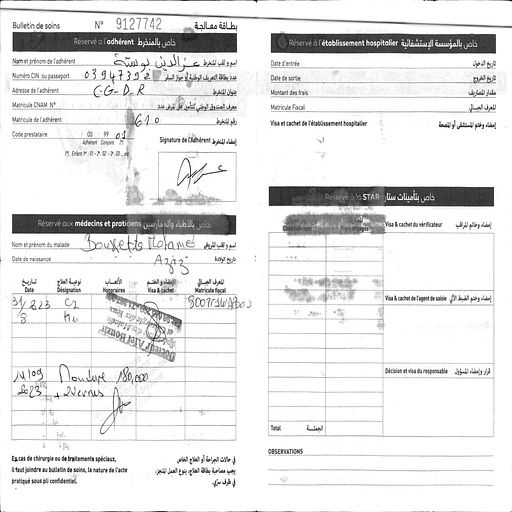 Bulletin de soins N° 9127742 بطاقة معالجة
Réservé à l'adhérent خاص بالمنخرط
Nom et prénom de l'adhérent عز الدين بوستة اسم و لقب المنخرط
Numéro CIN ou passeport 03947392 عدد بطاقة التعريف الوطنية أو جواز السفر
Adresse de l'adhérent C.G.D.R عنوان المنخرط
Matricule CNAM N° معرف الصندوق الوطني للتأمين على المرض عدد
Matricule de l'adhérent 610 رقم المنخرط
Code prestataire 00 99 01
Adhérent Conjoint (*)
(*) Enfant 1er -01 - 2 - 02 - 3 - 03 ... etc
Signature de l'Adhérent إمضاء المنخرط
Réservé aux médecins et praticiens خاص بالأطباء والممارسين
Nom et prénom du malade Mohamed اسم و لقب المريض
Date de naissance Aziz تاريخ الولادة
تاريخ نوعية العلاج الأتعاب الإمضاء و الختم المعرف الجبائي
Date Désignation Honoraires Visa & cachet Matricule fiscal
C2
Docteur Afef
14/09 Monture 180,000
2023 + 2 verres
En cas de chirurgie ou de traitements spéciaux,
il faut joindre au bulletin de soins, la nature de l'acte
pratiqué sous pli confidentiel.
في حالات الجراحة أو العلاج الخاص
يجب مصاحبة بطاقة العلاج، بنوع العمل المنجز،
في ظرف سرّي.
Réservé à l'établissement hospitalier خاص بالمؤسسة الإستشفائية
Date d'entrée تاريخ الدخول
Date de sortie تاريخ الخروج
Montant des frais مقدار المصاريف
Matricule Fiscal المعرف الجبائي
Visa et cachet de l'établissement hospitalier إمضاء وختم المستشفى أو المصحة
Réservé à la STAR خاص بتأمينات ستار
Visa & cachet du vérificateur إمضاء وخاتم المراقب
Visa & cachet de l'agent de saisie إمضاء وختم الضبط الآلي
Décision et visa du responsable قرار وإمضاء المسؤول
Total الجملة
OBSERVATIONS